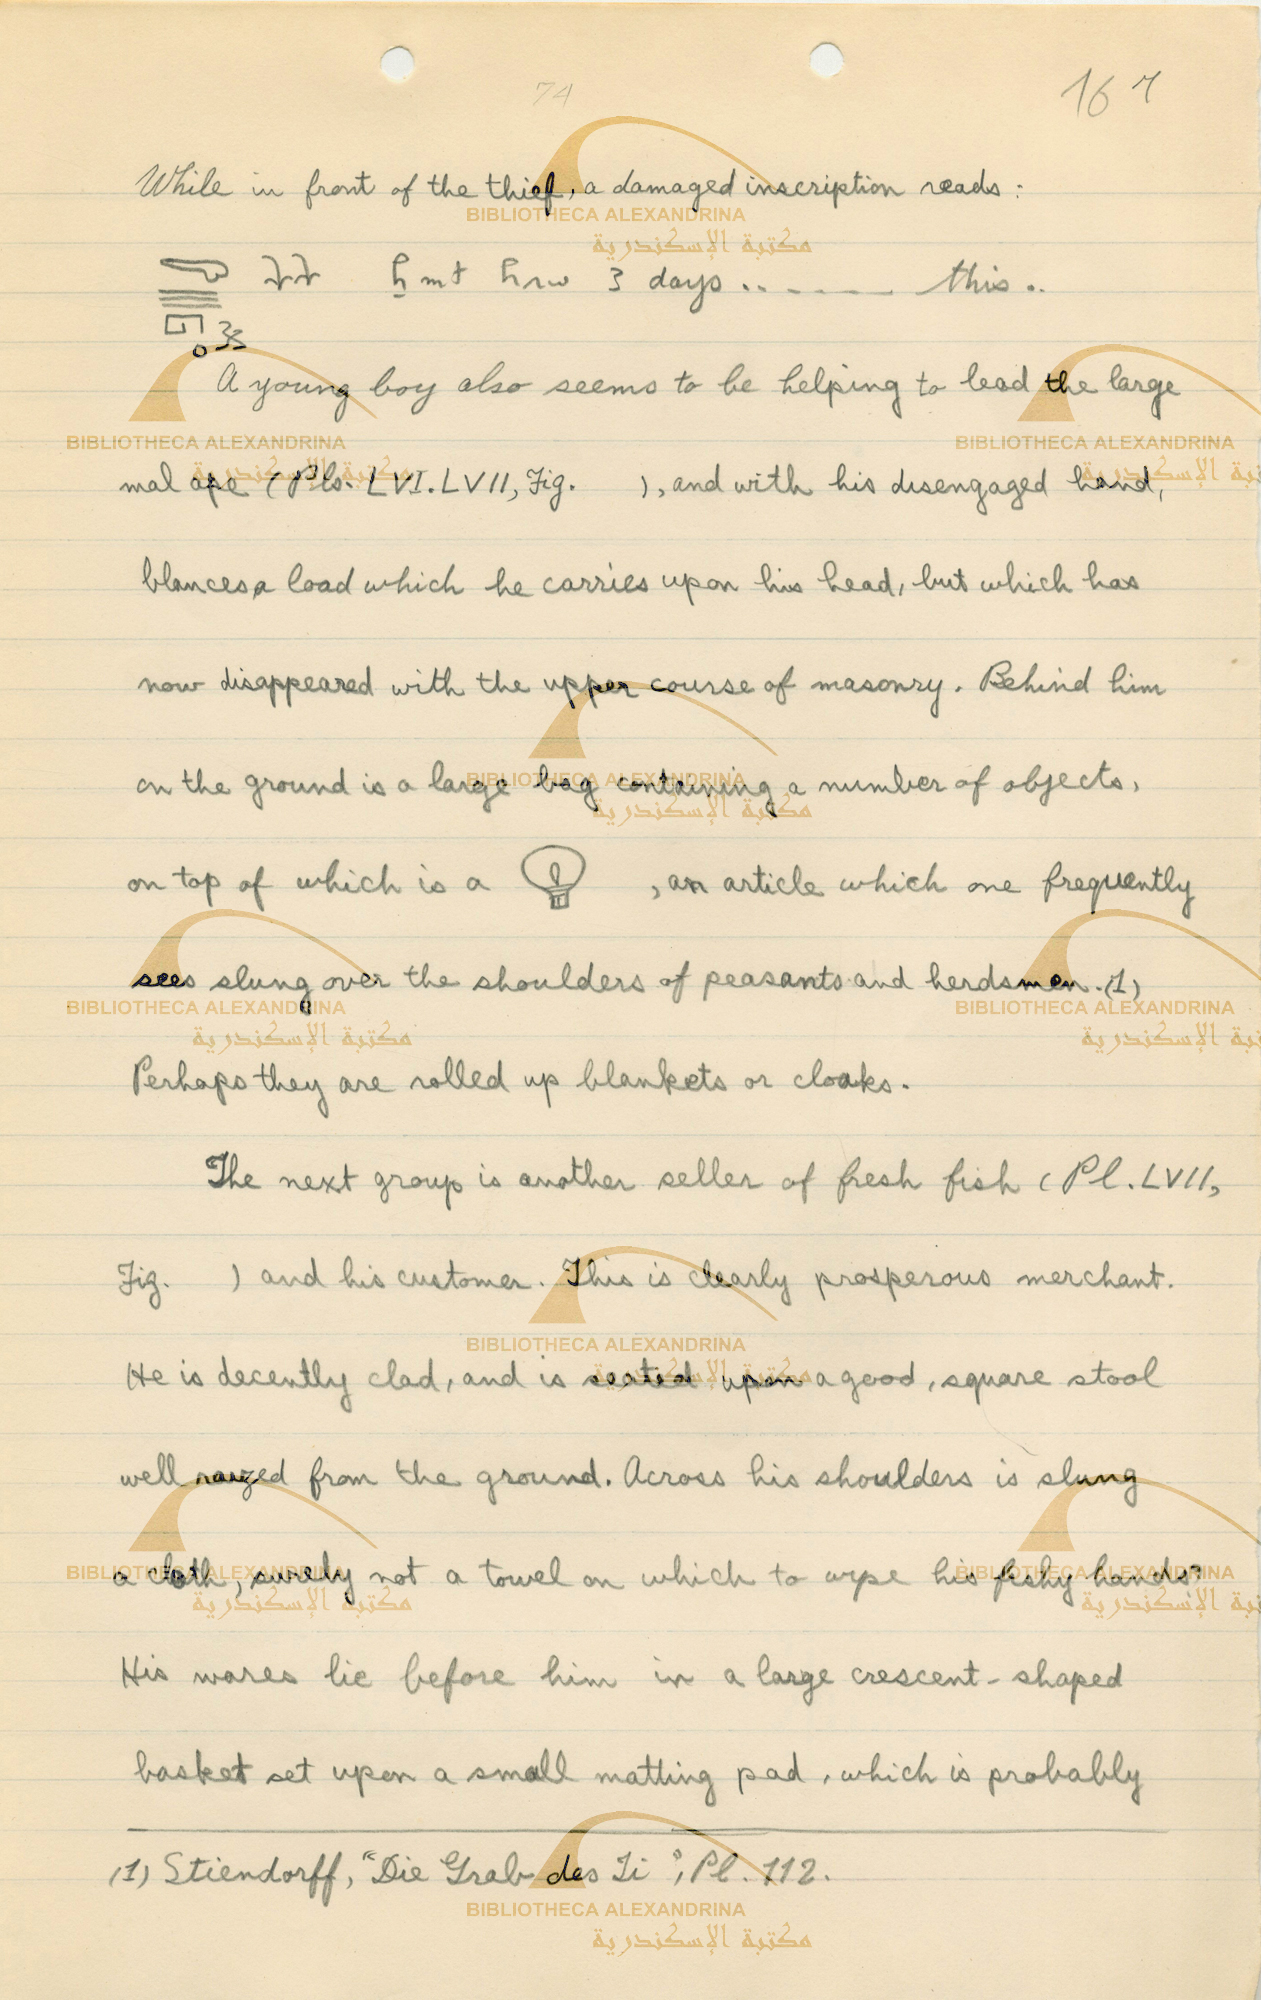 74
167
While in front of the thief, a damaged inscription reads :
ḫmt hrw 3 days .. - - - — this ..
A young boy also seems to be helping to lead the large
mal ape ( Pls. LVI. LVII, Fig. ), and with his disengaged hand,
blances a load which he carries upon his head, but which has
now disappeared with the upper course of masonry. Behind him
on the ground is a large bag containing a number of objects,
on top of which is a , an article which one frequently
sees slung over the shoulders of peasants and herdsmen. (1)
Perhaps they are rolled up blankets or cloaks.
The next group is another seller of fresh fish ( Pl. LVII,
Fig. ) and his customer. This is clearly prosperous merchant.
He is decently clad, and is seated upon a good, square stool
well raized from the ground. Across his shoulders is slung
a cloth, surely not a towel on which to wipe his fishy hands?
His wares lie before him in a large crescent-shaped
basket set upon a small matting pad, which is probably
(1) Stiendorff, "Die Grab des Ti", Pl. 112.
BIBLIOTHECA ALEXANDRINA
مكتبة الإسكندرية
BIBLIOTHECA ALEXANDRINA
مكتبة الإسكندرية
BIBLIOTHECA ALEXANDRINA
BIBLIOTHECA ALEXANDRINA
مكتبة الإسكندرية
BIBLIOTHECA ALEXANDRINA
مكتبة الإسكندرية
BIBLIOTHECA ALEXANDRINA
BIBLIOTHECA ALEXANDRINA
مكتبة الإسكندرية
BIBLIOTHECA ALEXANDRINA
مكتبة الإسكندرية
BIBLIOTHECA ALEXANDRINA
BIBLIOTHECA ALEXANDRINA
مكتبة الإسكندرية